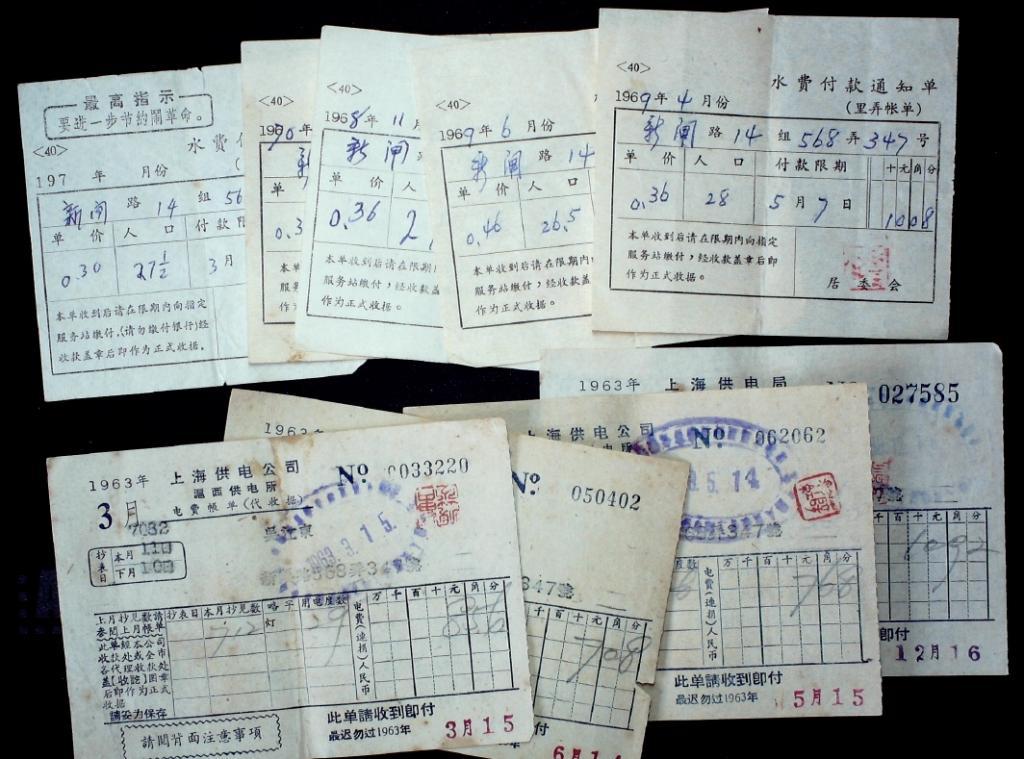 最高指示
要进一步节约闹革命。
<40>
水费
197 年 月份
新闸 路 14 组 56
单价 人口 付款
0.30 27½ 3月
本单收到后请在限期内向指定
服务站缴付,(请勿缴付银行)经
收款盖章后即作为正式收据。
<40>
1970年
单
0.3
本单
服务
作为
<40>
1968年 11月
新闸
单价 人
0.36 2
本单收到后请在限期
服务站缴付,经收款盖
作为正式收据。
<40>
1969年 6月份
新闸 路 14
单价 人口
0.46 26.5
本单收到后请在限期内
服务站缴付,经收款盖
作为正式收据。
<40>
水费付款通知单
(里弄帐单)
1969年 4月份
新闸 路 14 组 568 弄 347 号
单价 人口 付款限期 十元角分
0.36 28 5月7日 1008
本单收到后请在限期内向指定
服务站缴付,经收款盖章后即
作为正式收据。
居委会
1963年 上海供电公司 No 0033220
滬西供电所
3月 电費帳单(代收据)
7032
抄表日 本月 11日
下月 10日
1963. 3. 15.
568弄347
上月抄見数請参閱上月帳单 抄表日 本月抄見数 略字 用电度数 电費(連損)人民币 万千百十元角分
712 灯
此单經本公司
收款处或全市
各代理收款处
盖【收訖】图章
后即作为正式
收据
請妥为保存
請閱背面注意事項
此单請收到即付
最迟勿过1963年 3月15
1963
No 050402
347號
千百十元角分
708
6月1
上海供电公司 No 062062
5. 14
347號
度数 电費(連損)人民币 万千百十元角分
768
此单請收到即付
最迟勿过1963年 5月15
1963年 上海供电局 No 027585
千百十元角分
1092
即付
12月16